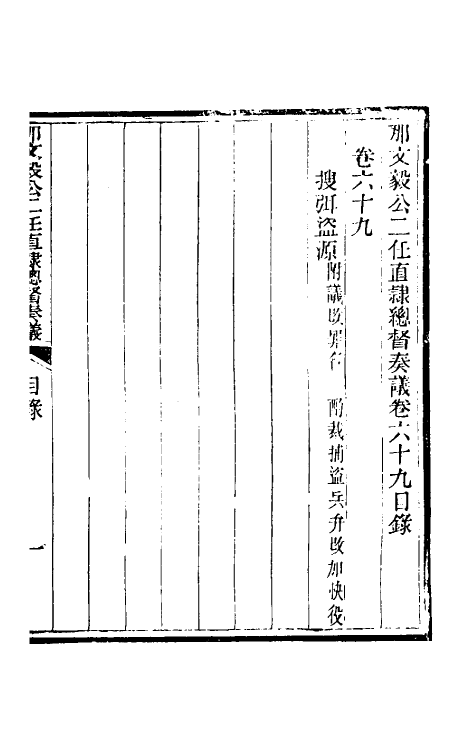 那文毅公二任直隸總督奏議卷六十九目錄
卷六十九
搜弭盜源附議改罪名 酌裁捕盜兵弁改加快役
那文毅公二任直隸總督奏議 目錄 一